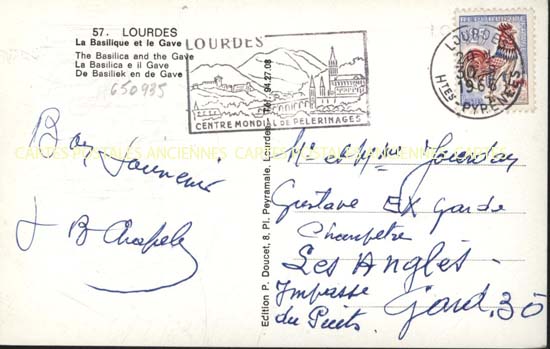 57. LOURDES
La Basilique et le Gave
The Basilica and the Gave
La Basilica e il Gave
De Basiliek en de Gave
650935
LOURDES
CENTRE MONDIAL DE PELERINAGES
LOURDES
1966
Htes PYRENEES
CARTES POSTALES ANCIENNES CARTES POSTALES ANCIENNES CARTES POSTALES ANCIENNES
Bon Souvenir
J B Chapelle
Edition P. Doucet, 8, Pl. Peyramale, Lourdes Tél. 94.27.08
Mr et Mme Jourdan
Gustave EX Garde
Champetre
Les Angles
Impasse
du Puits Gard. 30